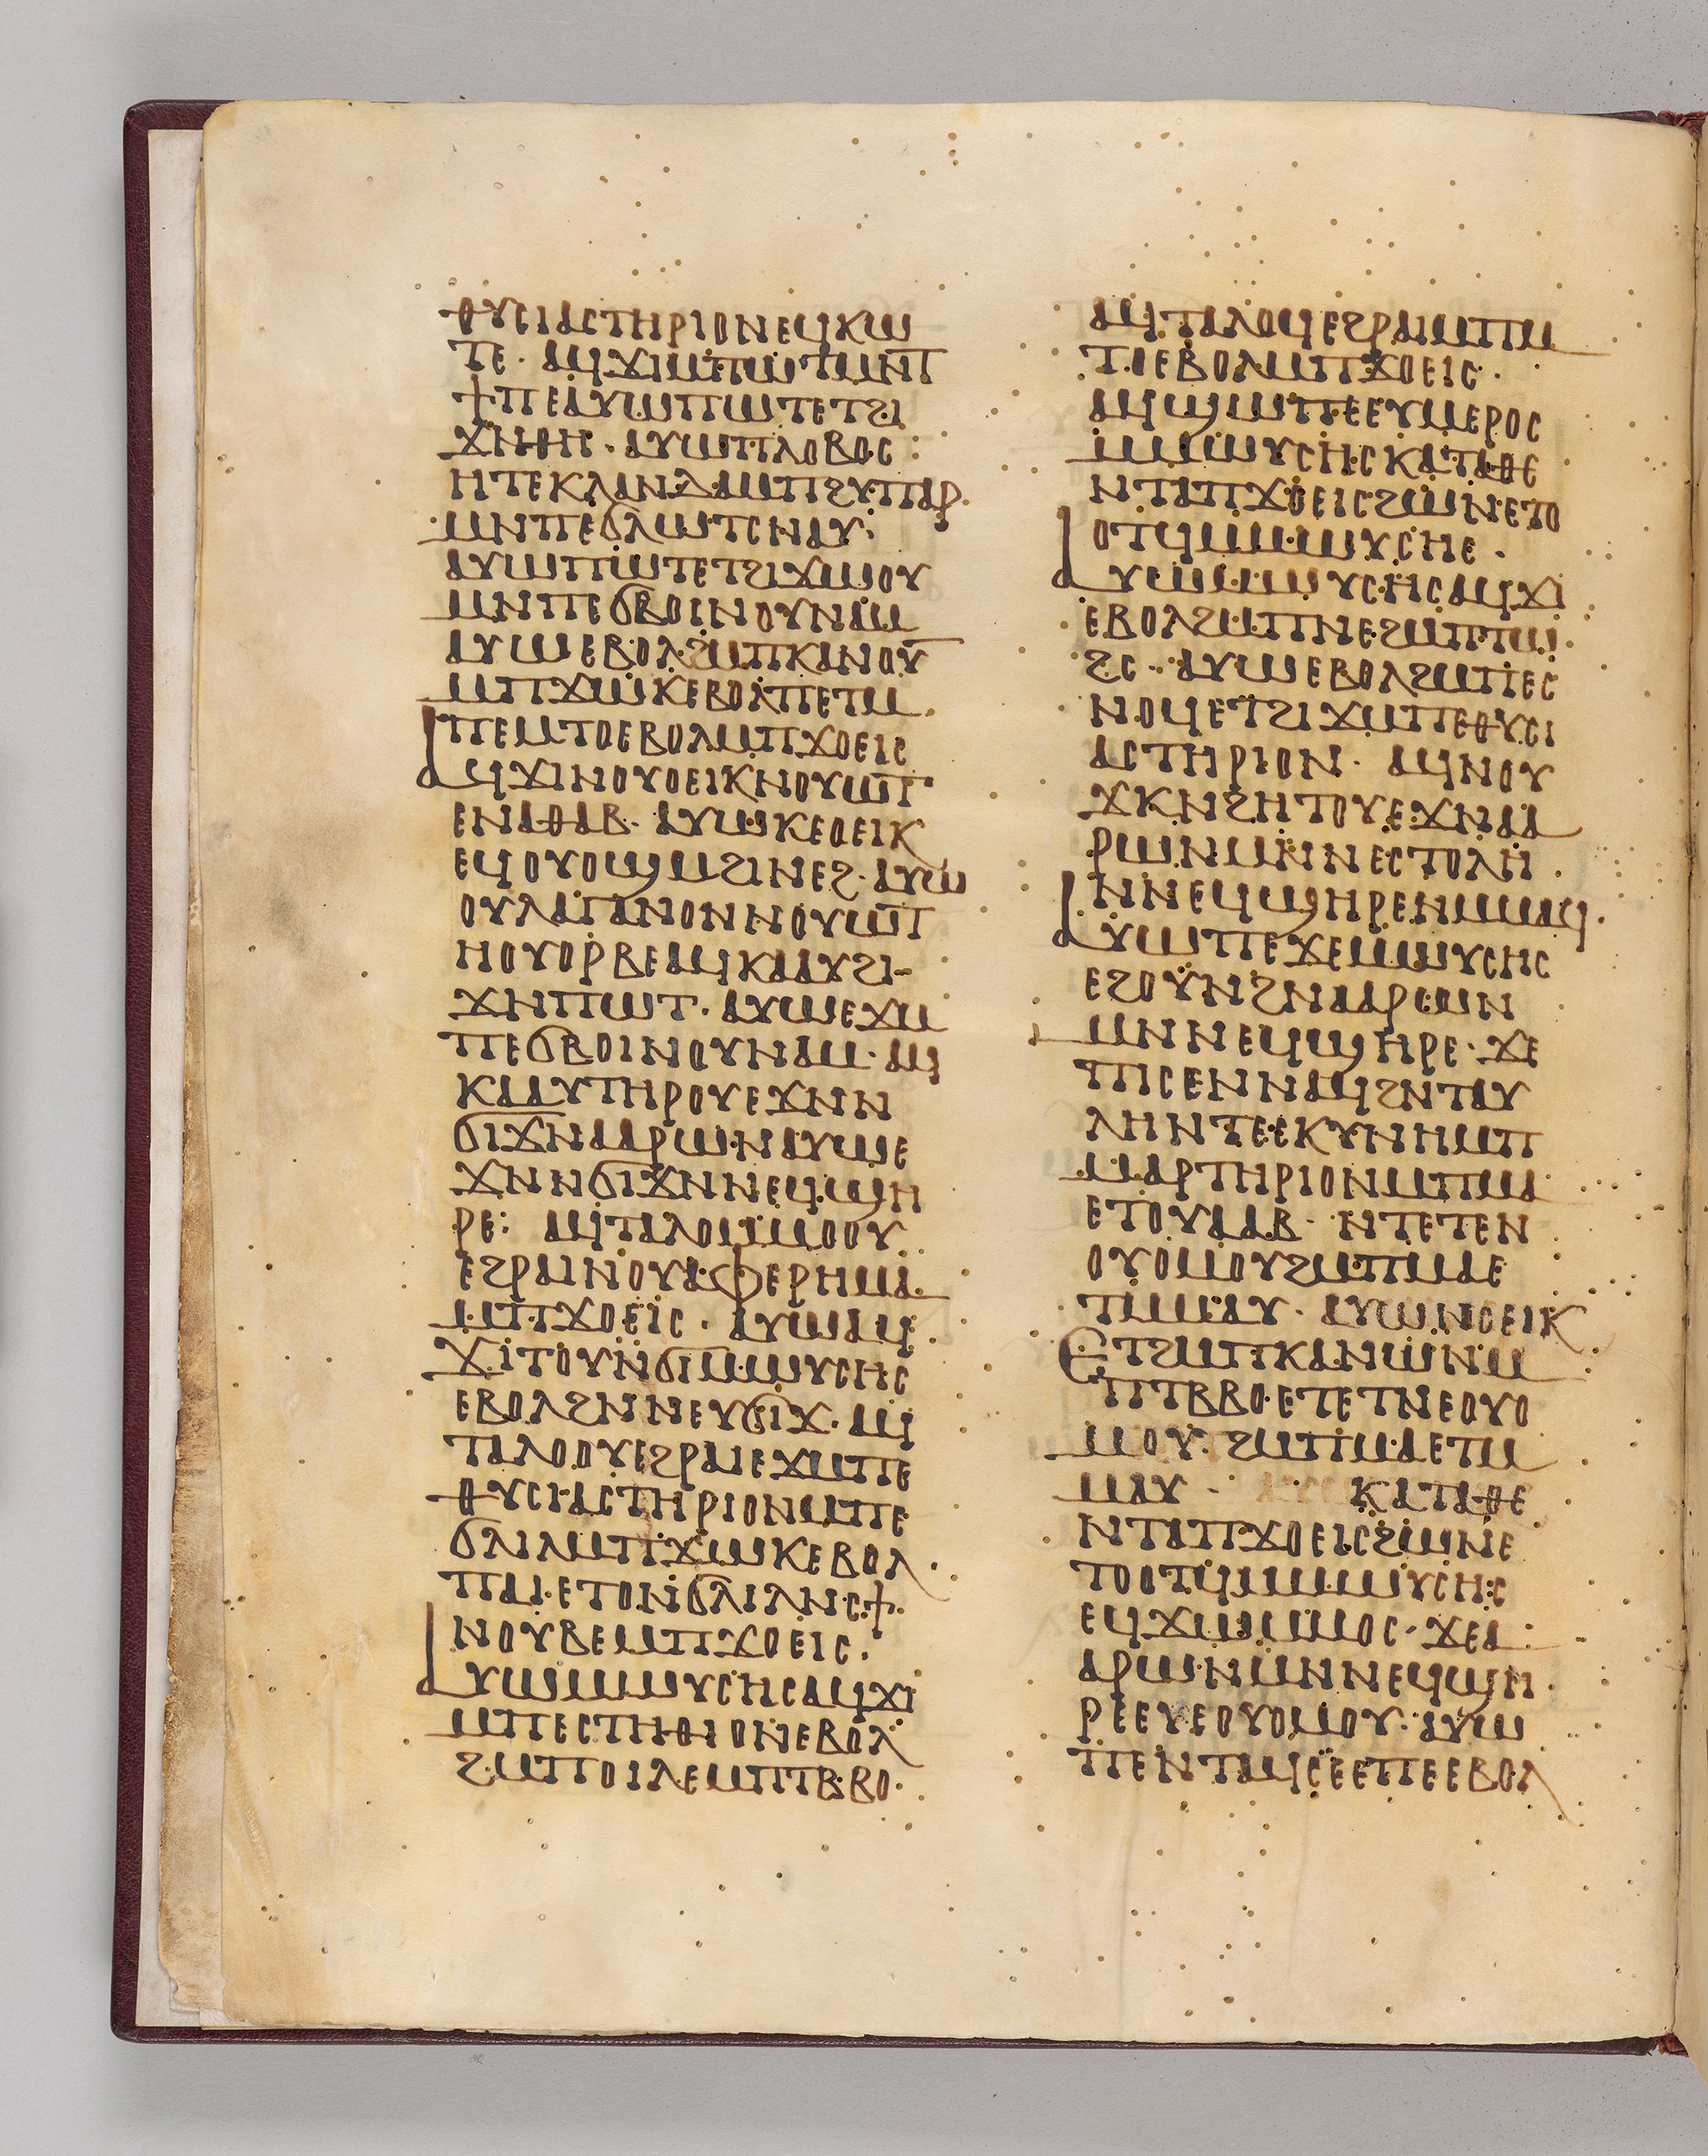 ⲑⲩⲥⲓⲁⲥⲧⲏⲣⲓⲟⲛⲉϥⲕⲱ
ⲧⲉ· ⲁϥϫⲓⲙⲡⲱⲧⲙⲛⲧ
ϯⲡⲉⲁⲩⲱⲡⲱⲧⲉⲧϩⲓ
ϫⲛⲑⲏ· ⲁⲩⲱⲡⲗⲟⲃⲟⲥ
ⲏⲧⲉⲕⲗⲁⲛⲇⲁⲙⲡϩⲩⲡⲁⲣ
ⲙⲛⲡⲉϭⲗⲱⲧⲥⲛⲁⲩ·
ⲁⲩⲱⲡⲱⲧⲉⲧϩⲓϫⲱⲟⲩ
ⲙⲛⲡⲉϭⲃⲟⲓⲛⲟⲩⲛⲁⲙ
ⲁⲩⲱⲉⲃⲟⲗϩⲙⲡⲕⲁⲛⲟⲩ
ⲙⲡϫⲱⲕⲉⲃⲟⲗⲡⲉⲧⲙ
ⲡⲉⲙⲧⲟⲉⲃⲟⲗⲙⲡϫⲟⲉⲓⲥ
ⲁϥϫⲓⲛⲟⲩⲟⲉⲓⲕⲛⲟⲩⲱⲧ
ⲉⲛⲁⲑⲁⲃ· ⲁⲩⲱⲕⲉⲟⲉⲓⲕ
ⲉϥⲟⲩⲟϣⲙϩⲓⲛⲉϩ· ⲁⲩⲱ
ⲟⲩⲗⲁⲅⲁⲛⲟⲛⲛⲟⲩⲱⲧ
ⲏⲟⲩⲟⲣⲃⲉⲁϥⲕⲁⲁⲩϩⲓ-
ϫⲛⲡⲱⲧ· ⲁⲩⲱⲉϫⲙ
ⲡⲉϭⲃⲟⲓⲛⲟⲩⲛⲁⲙ· ⲁϥ
ⲕⲁⲁⲩⲧⲏⲣⲟⲩⲉϫⲛⲛ
ϭⲓϫⲛⲁⲁⲣⲱⲛⲁⲩⲱⲉ
ϫⲛⲛϭⲓϫⲛⲛⲉϥϣⲏ
ⲣⲉ: ⲁϥⲧⲁⲗⲟⲙⲙⲟⲟⲩ
ⲉϩⲣⲁⲓⲛⲟⲩⲁⲫⲉⲣⲏⲙⲁ
ⲙⲡϫⲟⲉⲓⲥ· ⲁⲩⲱⲁϥ
ϫⲓⲧⲟⲩⲛϭⲓⲙⲱⲩⲥⲏⲥ
ⲉⲃⲟⲗϩⲛⲛⲉⲩϭⲓϫ· ⲁϥ
ⲧⲁⲗⲟⲟⲩⲉϩⲣⲁⲓⲉϫⲙⲡⲉ
ⲑⲩⲥⲓⲁⲥⲧⲏⲣⲓⲟⲛⲙⲡⲉ
ϭⲗⲓⲗⲙⲡϫⲱⲕⲉⲃⲟⲗ
ⲡⲁⲓ·ⲉⲧⲟⲛϭⲗⲓⲗⲛⲥϯ
ⲛⲟⲩⲃⲉⲙⲡϫⲟⲉⲓⲥ·
ⲁⲩⲱⲙⲱⲩⲥⲏⲥⲁϥϫⲓ
ⲙⲡⲉⲥⲧⲏⲑⲓⲟⲛⲉⲃⲟⲗ
ϩⲙⲡⲟⲓⲗⲉⲙⲡⲧⲃⲃⲟ·
ⲁϥⲧⲁⲗⲟϥⲉϩⲣⲁⲓⲙⲡⲙ
ⲧⲟⲉⲃⲟⲗⲙⲡϫⲟⲉⲓⲥ·
ⲁϥϣⲱⲡⲉⲉⲩⲙⲉⲣⲟⲥ
ⲙⲙⲱⲩⲥⲏⲥⲕⲁⲧⲁⲑⲉ
ⲛⲧⲁⲡϫⲟⲉⲓⲥϩⲱⲛⲉⲧⲟ
ⲟⲧϥⲙⲙⲱⲩⲥⲏⲥ·
ⲁⲩⲱⲙⲱⲩⲥⲏⲥⲁϥϫⲓ
ⲉⲃⲟⲗϩⲙⲡⲛⲉϩⲙⲡⲧⲱ
ϩⲥ· ⲁⲩⲱⲉⲃⲟⲗϩⲙⲡⲉⲥ
ⲛⲟϥⲉⲧϩⲓϫⲙⲡⲉⲑⲩⲥⲓ
ⲁⲥⲧⲏⲣⲓⲟⲛ· ⲁϥⲛⲟⲩ
ϫⲕⲛϩⲏⲧⲟⲩⲉϫⲛⲁⲁ
ⲣⲱⲛⲙⲛⲛⲉⲥⲧⲟⲗⲏ
ⲛⲛⲉϥϣⲏⲣⲉⲛⲙⲙⲁϥ·
ⲁⲩⲱⲡⲉϫⲉⲙⲱⲩⲥⲏⲥ
ⲉϩⲟⲩⲛϩⲛⲁⲁⲣⲱⲛ
ⲙⲛⲛⲉϥϣⲏⲣⲉ· ϫⲉ
ⲡⲓⲥⲉⲛⲛⲁϥϩⲛⲧⲁⲩ
ⲗⲏⲛⲧⲉⲥⲕⲩⲛⲏⲙⲡ
ⲙⲁⲣⲧⲏⲣⲓⲟⲛⲙⲡⲙⲁ
ⲉⲧⲟⲩⲁⲁⲃ· ⲛⲧⲉⲧⲉⲛ
ⲟⲩⲟⲙⲟⲩϩⲙⲡⲙⲁⲉ
ⲧⲙⲙⲁⲩ· ⲁⲩⲱⲛⲟⲉⲓⲕ
ⲉⲧϩⲙⲡⲕⲁⲛⲱⲛⲙ
ⲡⲧⲃⲃⲟ·ⲉⲧⲉⲧⲛⲉⲟⲩⲟ
ⲙⲟⲩ· ϩⲙⲡⲙⲁⲉⲧⲙ
ⲙⲁⲩ· ⲕⲁⲧⲁⲑⲉ
ⲛⲧⲁⲡϫⲟⲉⲓⲥϩⲱⲛⲉ
ⲧⲟⲟⲧϥⲙⲙⲱⲩⲥⲏⲥ
ⲉϥϫⲱⲙⲙⲟⲥ· ϫⲉⲁ
ⲁⲣⲱⲛⲙⲛⲛⲉϥϣⲏ
ⲣⲉⲉⲩⲉⲟⲩⲟⲙⲟⲩ· ⲁⲩⲱ
ⲡⲉⲛⲧⲁϥⲥⲉⲉⲡⲉⲉⲃⲟⲗ